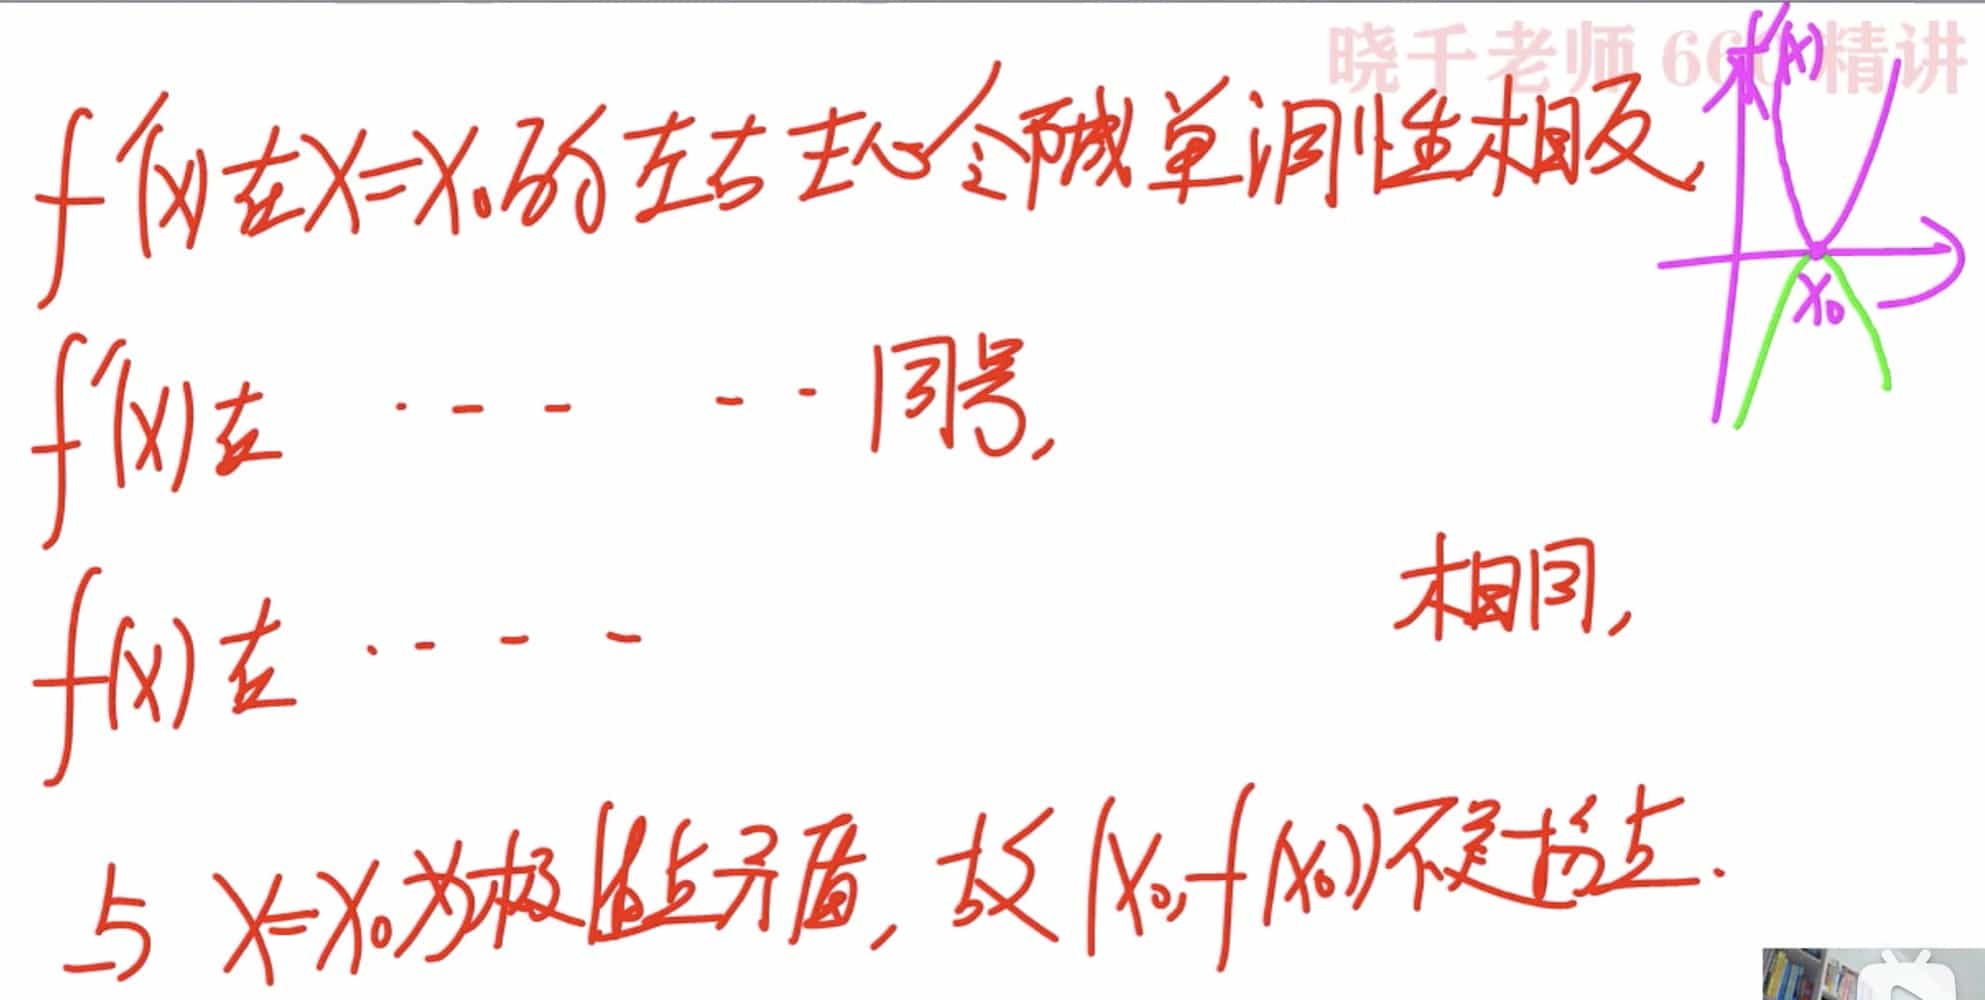 晓千老师 660精讲
f'(x)
f'(x)在x=x₀的左右去心邻域单调性相反,
x₀
f'(x)在 ·-- -- 同号,
f(x)在 ·--- 相同,
与 x=x₀为极值点矛盾, 故(x₀,f(x₀))不是拐点.